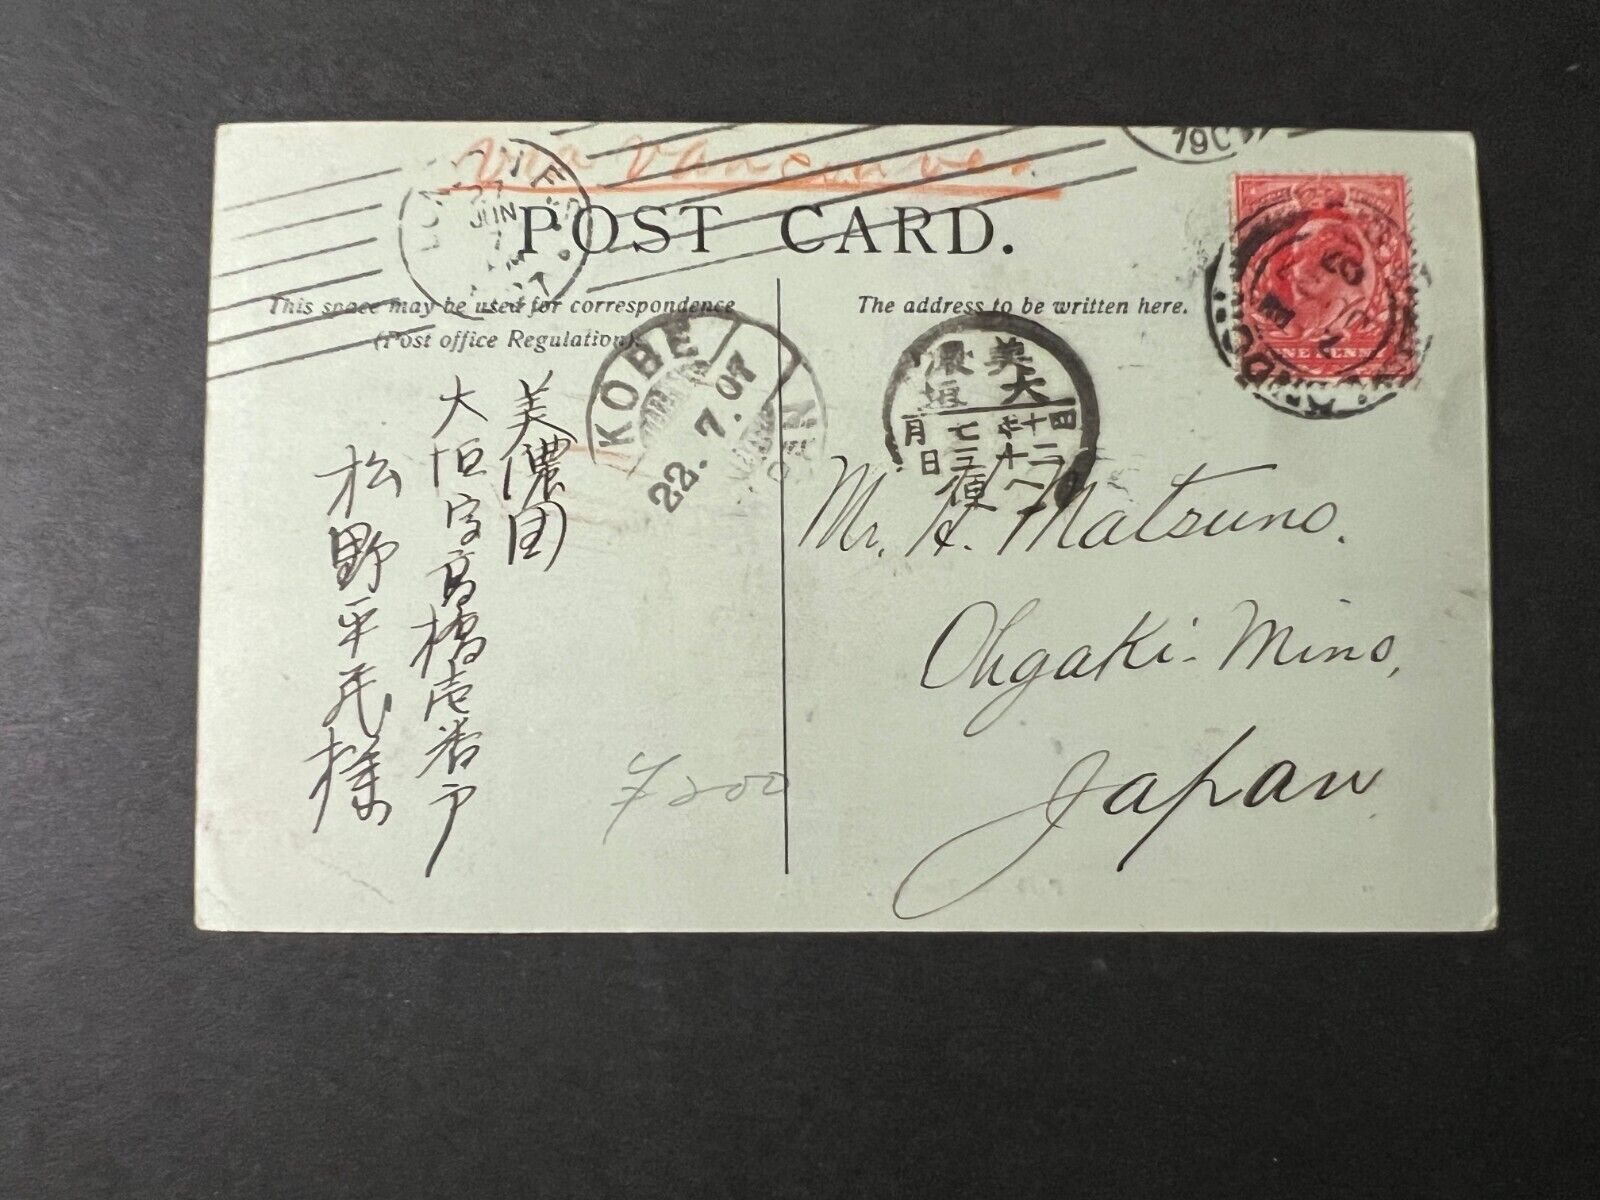 via Vancouver.
POST CARD.
This space may be used for correspondence
(Post office Regulation).
The address to be written here.
KOBE
22.7.07
JAPAN
JUN
190
LONDON
ONE PENNY
美濃
大垣
四十
七月
日
便
美濃国
大垣字高橋壱番戸
松野平
様
Mr. H. Matsuno.
Ohgaki - Mino,
Japan
¥200